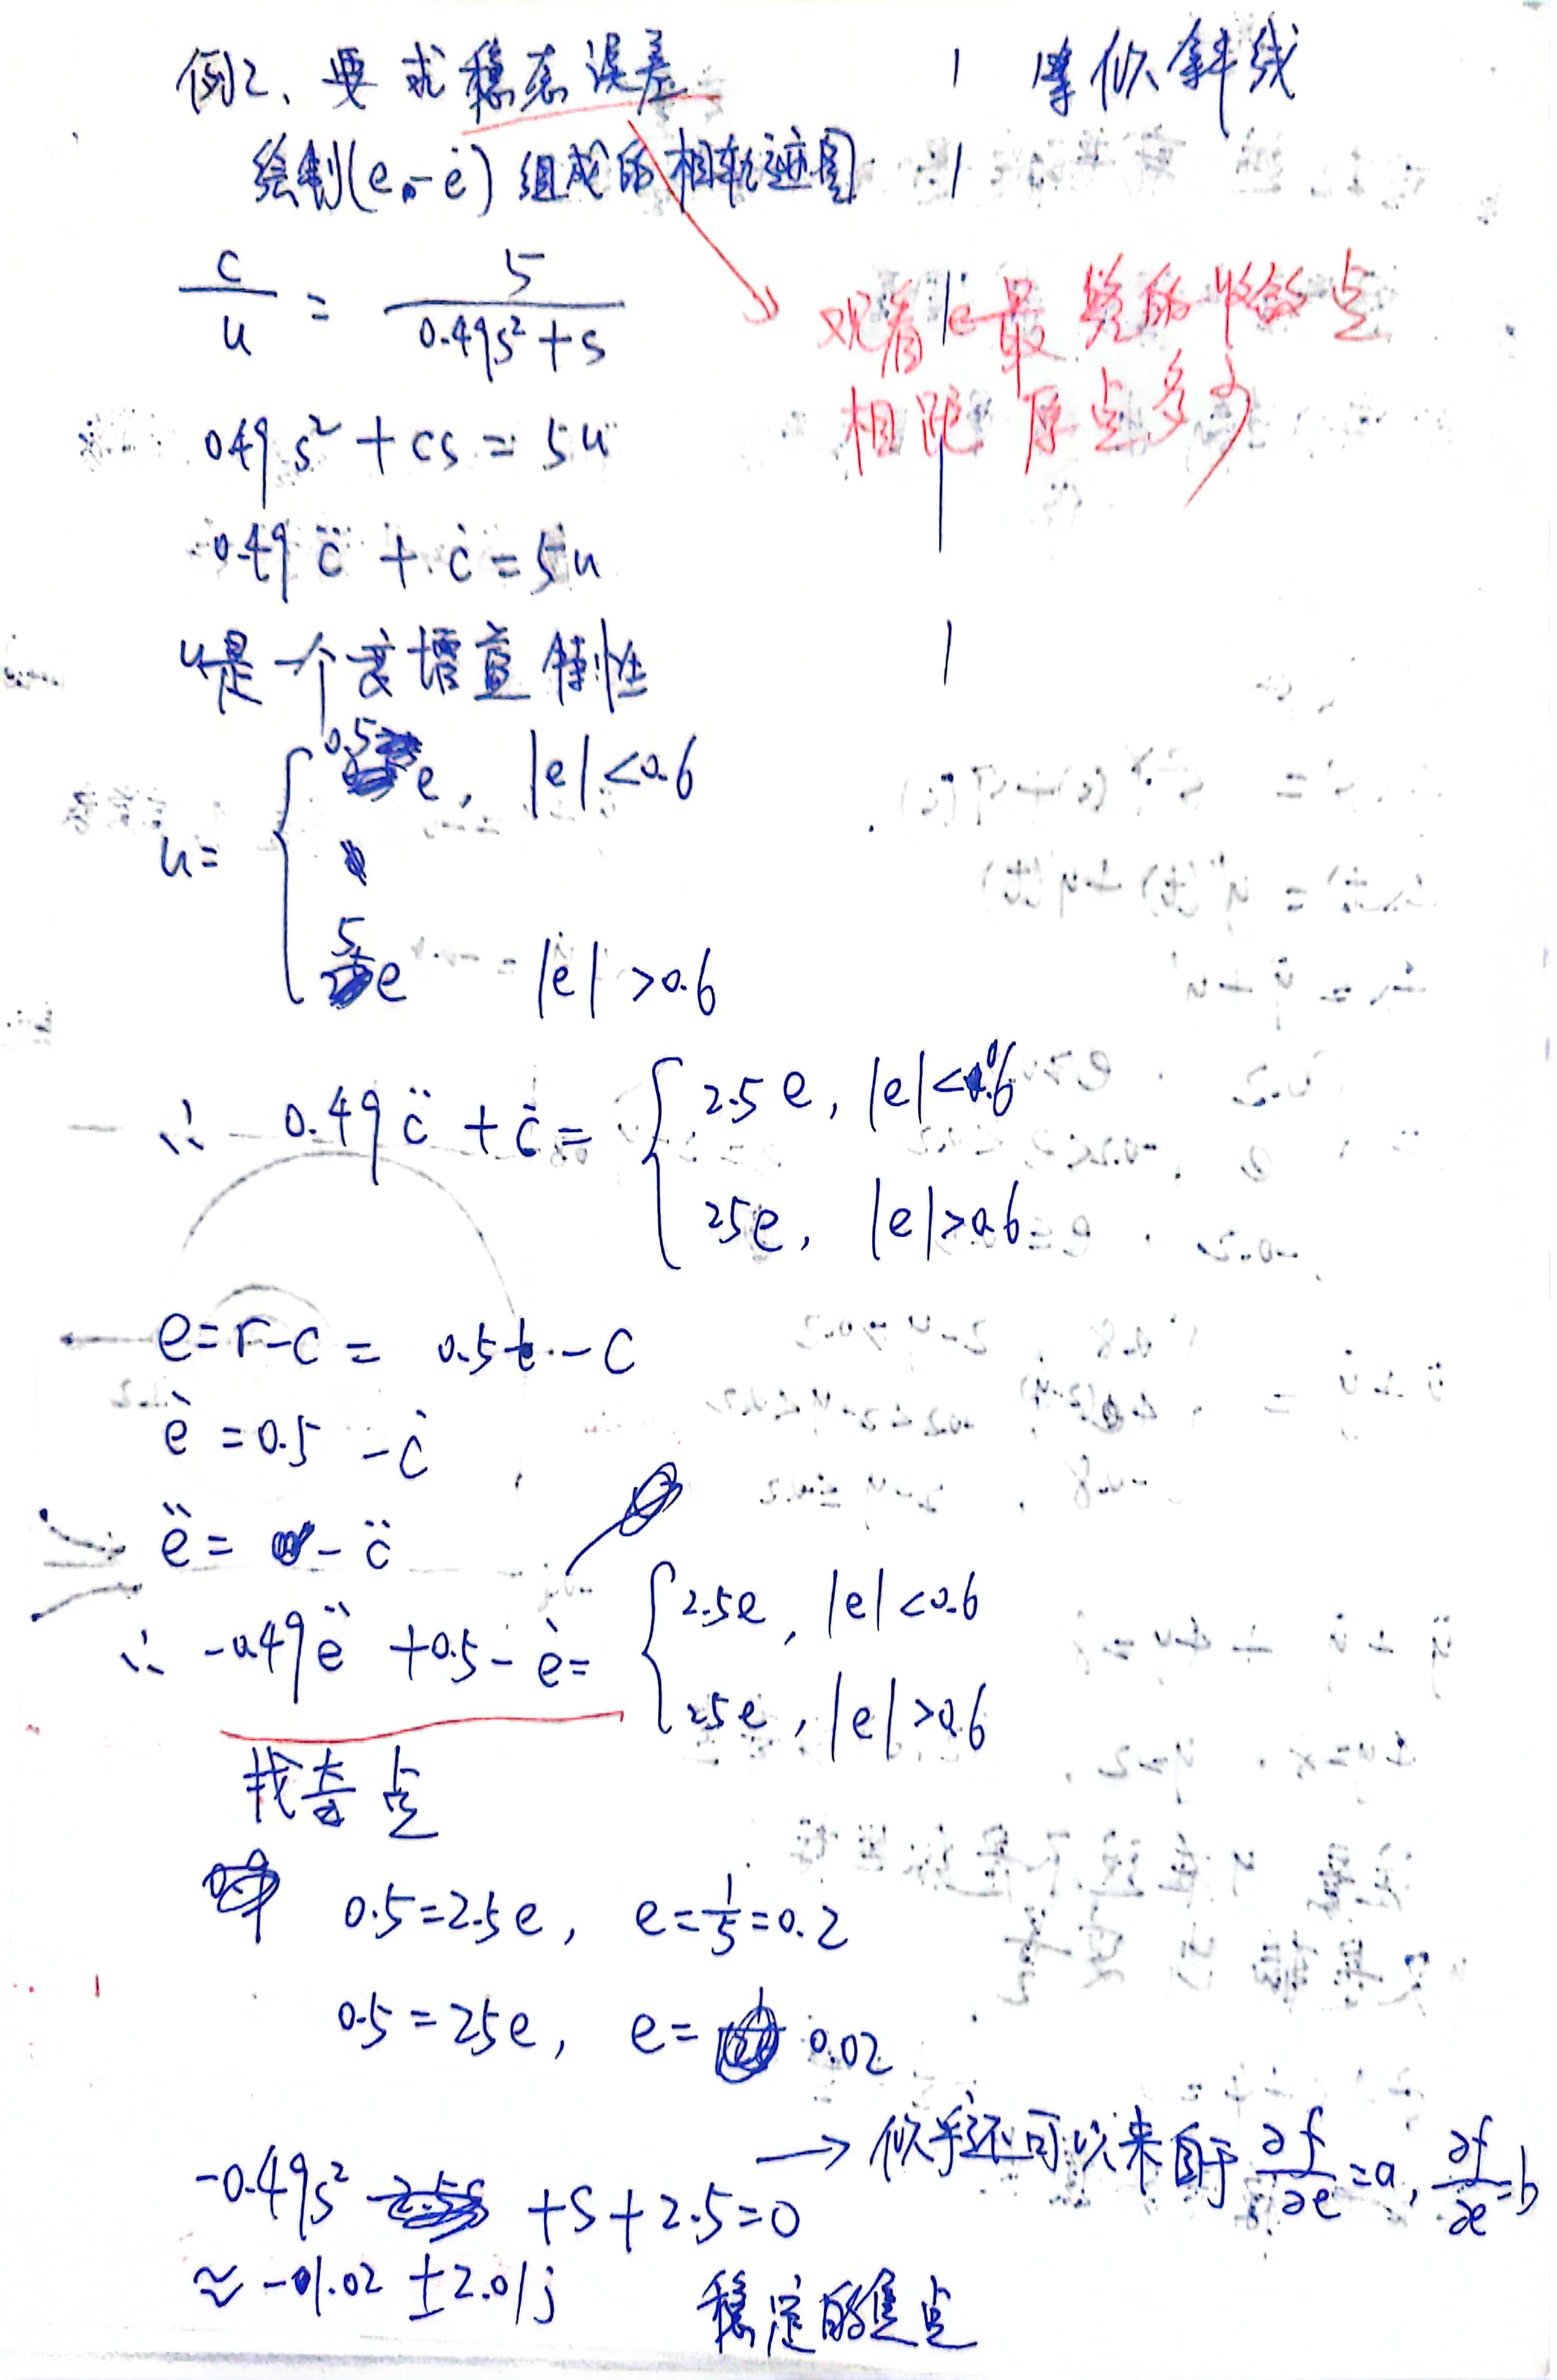 例2、要求稳态误差
绘制(e-ė)组成的相轨迹图
斜线
观看e最终的收敛点
相距原点多少
c/u = 5/(0.49s²+s)
0.49s²+cs=5u
0.49c̈+ċ=5u
u是一个变增益特性
u= { 0.5e, |e|<0.6
5e |e|>0.6
∴ 0.49c̈+ċ= { 2.5e, |e|<0.6
25e, |e|>0.6
e=r-c= 0.5t-c
ė=0.5-ċ
ë= -c̈
∴ -0.49ë+0.5-ė= { 2.5e, |e|<0.6
25e, |e|>0.6
找奇点
0.5=2.5e, e=1/5=0.2
0.5=25e, e= 0.02
→ 似乎还可以来自于 ∂f/∂e=a, ∂f/∂e=b
-0.49s² +s+2.5=0
≈-1.02±2.01j 稳定的焦点